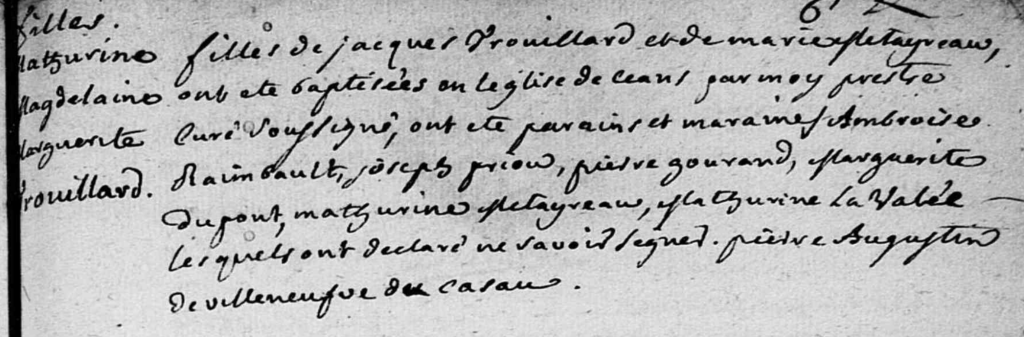 filles.
Mathurine
Magdelaine
Marguerite
Trouillard.
filles de jacques Trouillard et de marie Metayreau,
ont ete baptisées en leglise de ceans par moy prestre
Curé Soussigné, ont ete parains et maraines Ambroise
Raimbault, joseph priou, pierre gourand, Marguerite
Dupont, mathurine Metayreau, Mathurine La Valée
lesquels ont declaré ne savoir signer. pierre Augustin
de villeneufve du Casau.